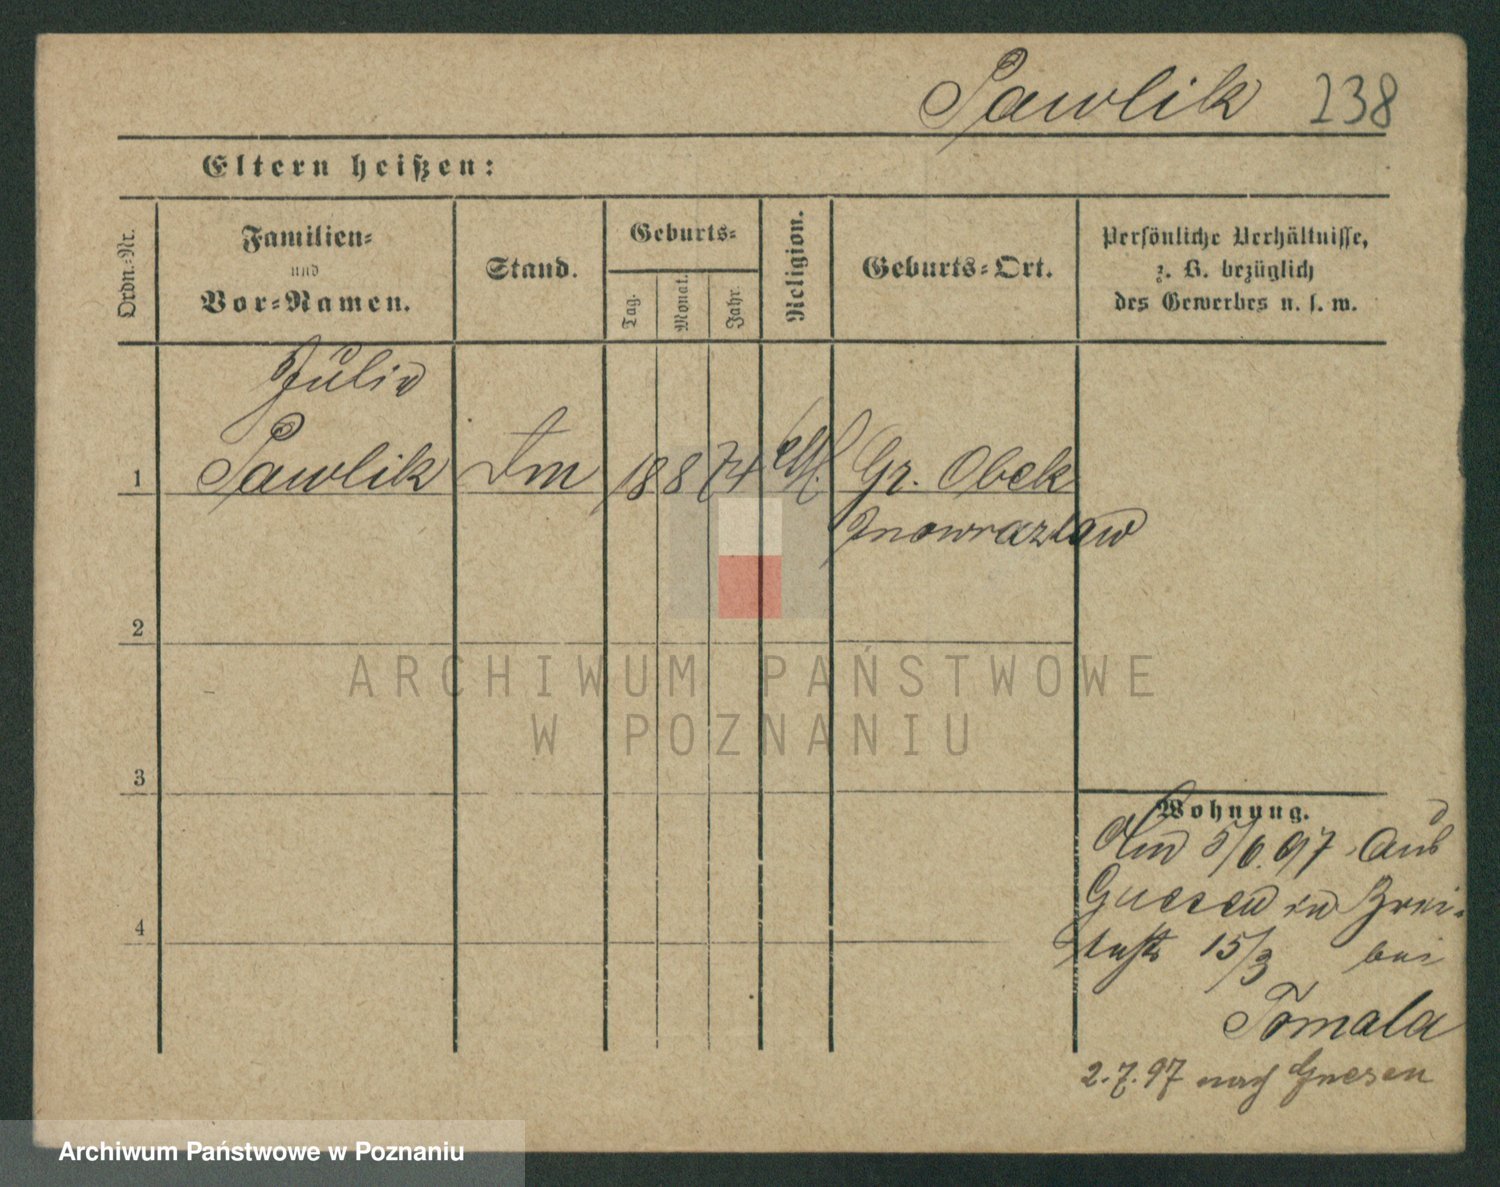 Pawlik 238
Eltern heißen:
Ordn.-Nr.
Familien-
und
Vor-Namen.
Stand.
Geburts-
Tag.
Monat.
Jahr.
Religion.
Geburts-Ort.
Persönliche Verhältnisse,
z. B. bezüglich
des Gewerbes u. s. w.
Julie
1 Pawlik 18 8 74 Gr. Obek
Inowrazlaw
2
3
4
Wohnung.
5/6.97 aus
Gnesen in Brei-
testr 15/3 bei
Tomala
2.7.97 nach Gnesen
ARCHIWUM PAŃSTWOWE
W POZNANIU
Archiwum Państwowe w Poznaniu